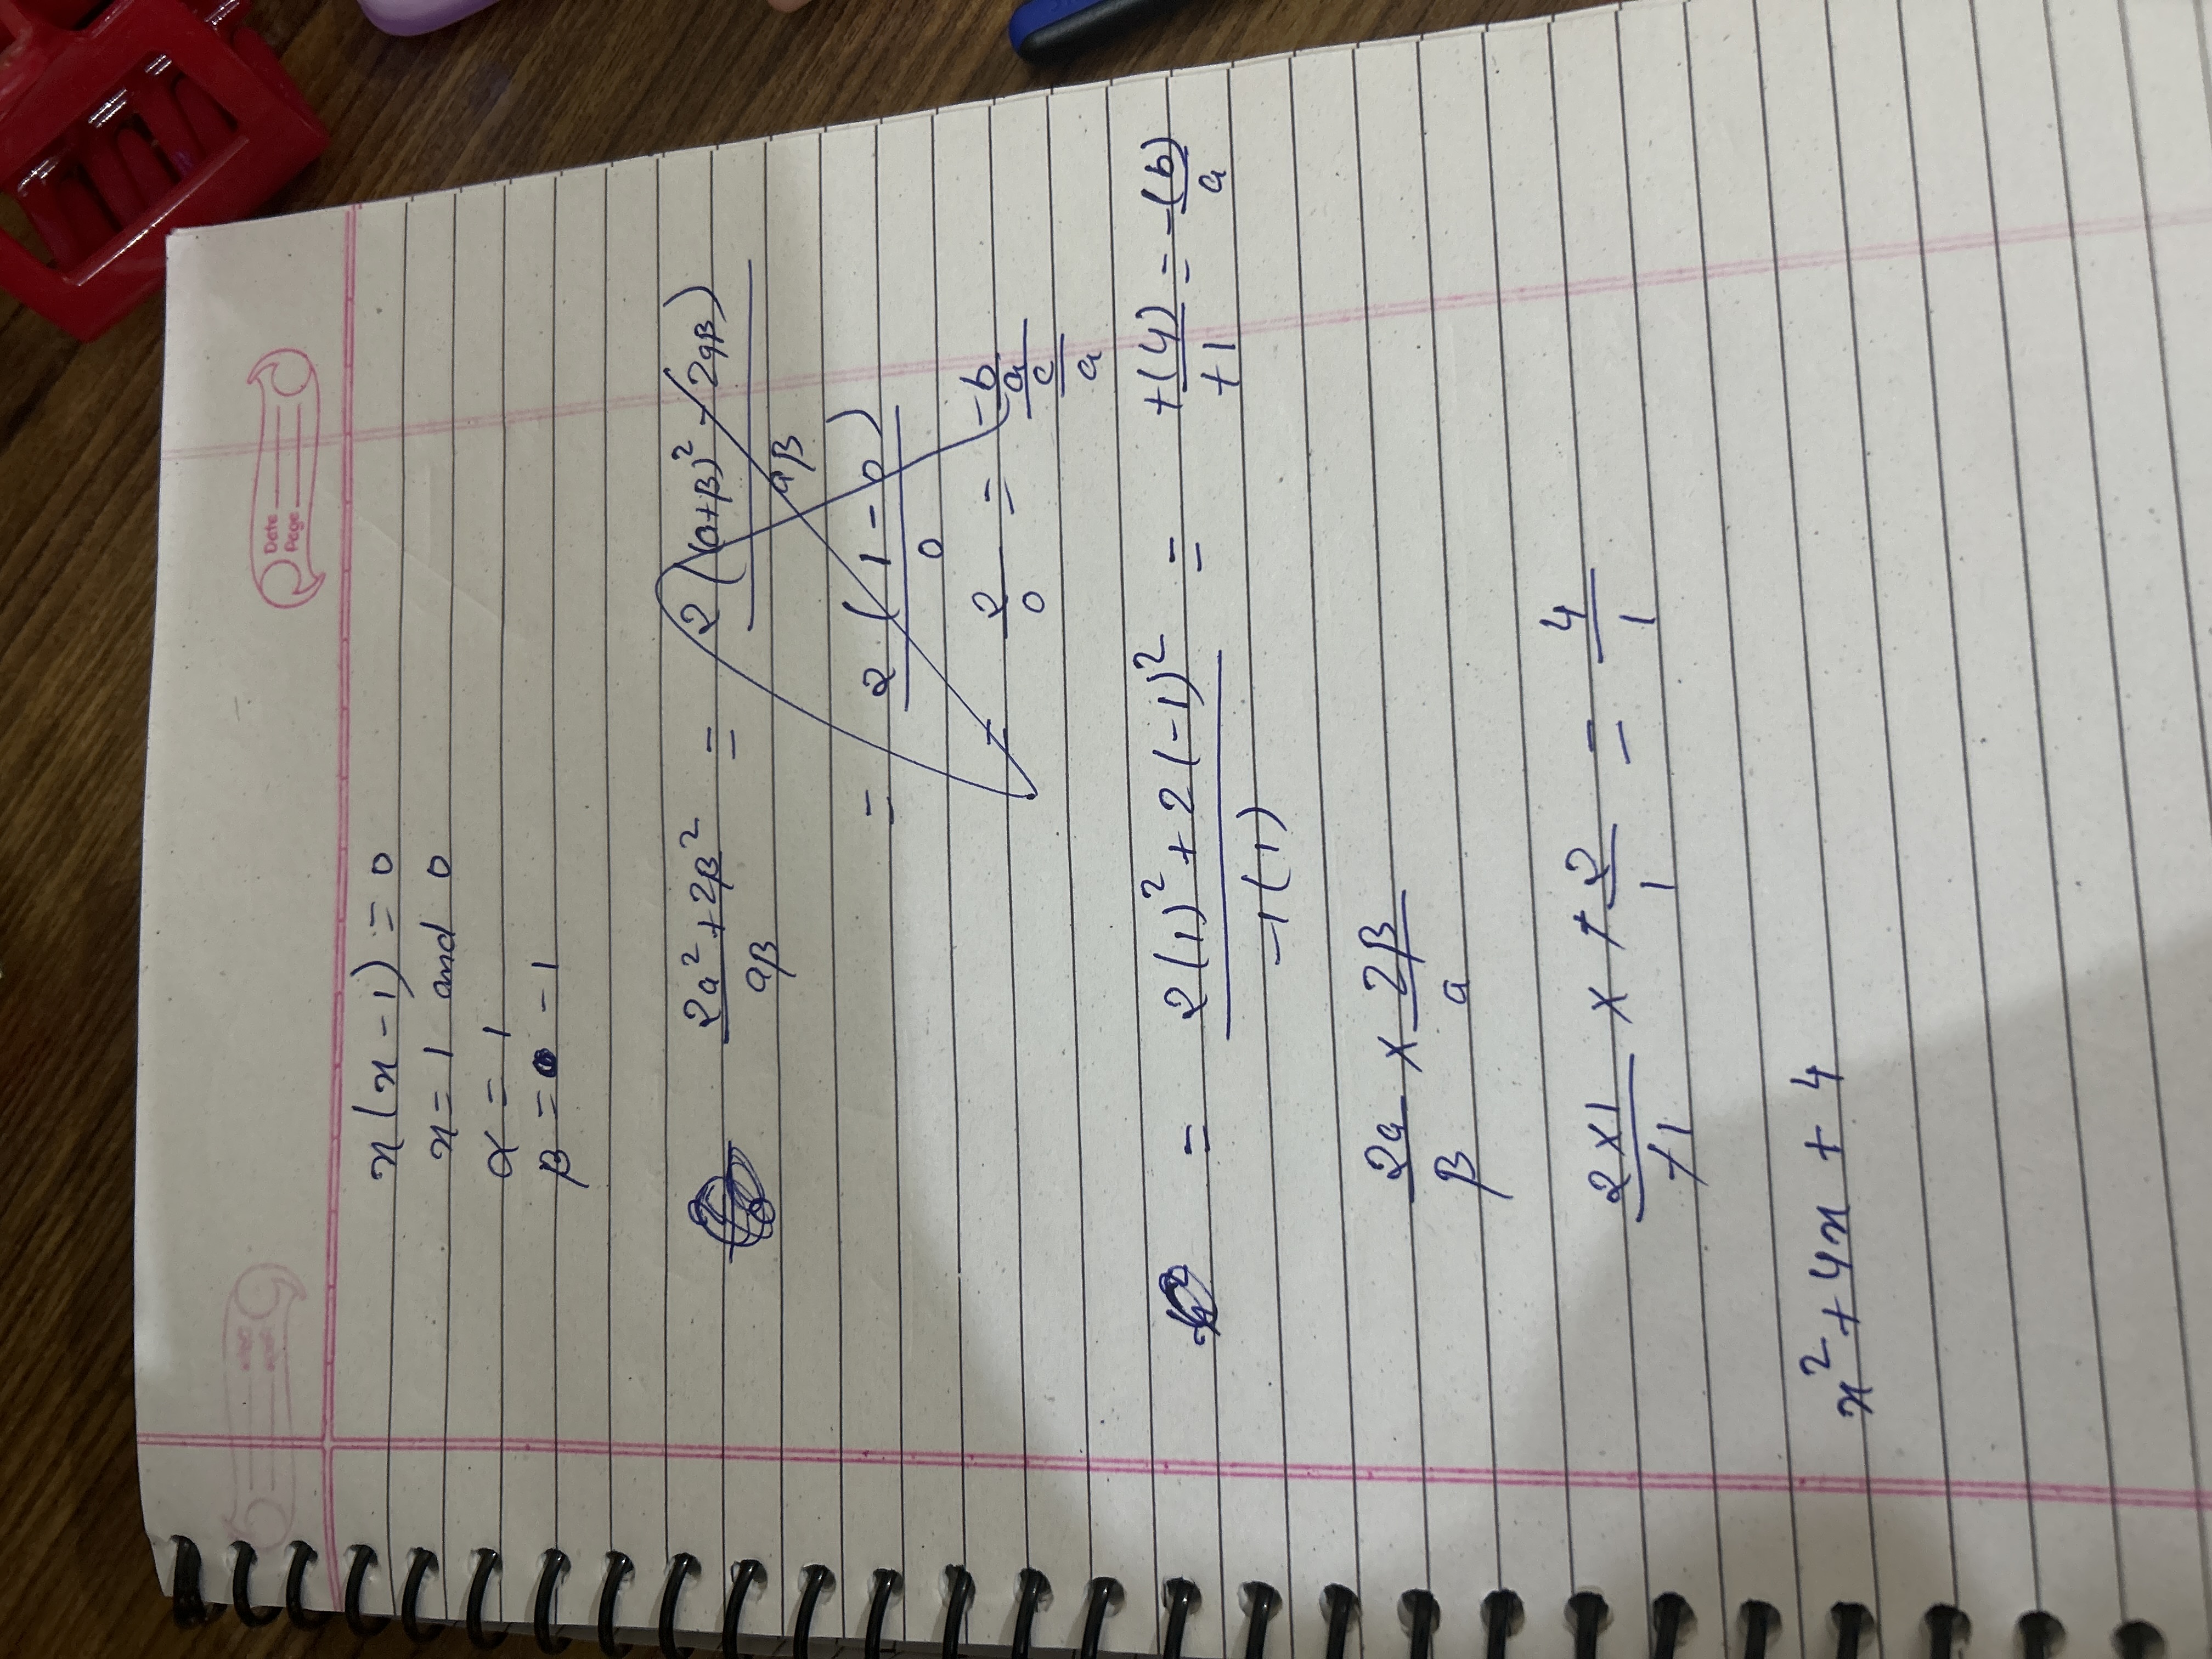 Date
Page
x(x-1) = 0
x = 1 and 0
α = 1
β = -1
2α² + 2β² / αβ = 2((α+β)² - 2αβ) / αβ
= 2(1-0) / 0
2/0 = -b/a / c/a
= 2(1)² + 2(-1)² / -1(1) = +(4)/+1 = -(b)/a
2α/β × 2β/α
2×1/-1 × -2/1 = 4/1
x² + 4x + 4